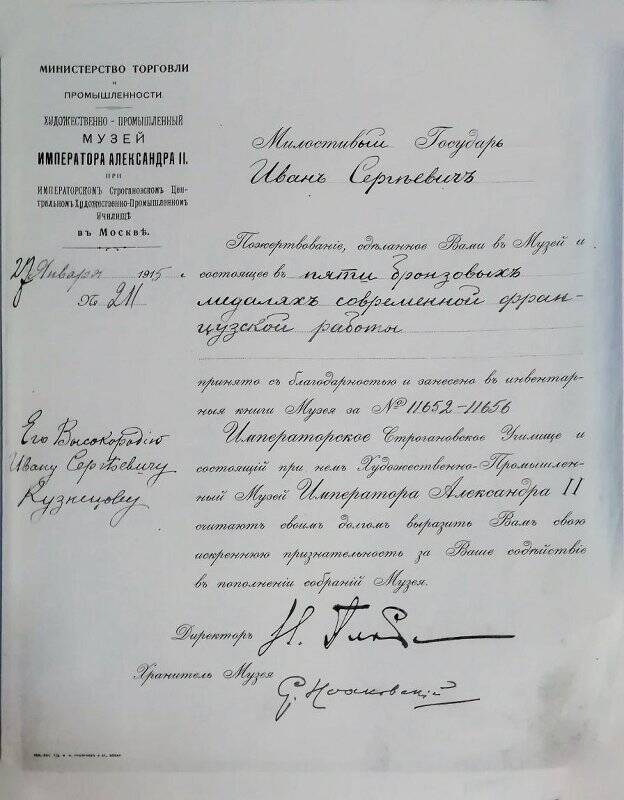 МИНИСТЕРСТВО ТОРГОВЛИ
и
ПРОМЫШЛЕННОСТИ.
ХУДОЖЕСТВЕННО-ПРОМЫШЛЕННЫЙ
МУЗЕЙ
ИМПЕРАТОРА АЛЕКСАНДРА II.
ПРИ
ИМПЕРАТОРСКОМЪ Строгановскомъ Цен-
тральномъ Художественно-Промышленномъ
Училищѣ
въ Москвѣ.
27 Января 1915 г.
№ 211
Его Высокородію
Ивану Сергѣевичу
Кузнецову
Милостивый Государь
Иванъ Сергѣевичъ
Пожертвованіе, сдѣланное Вами въ Музей и
состоящее въ пяти бронзовыхъ
медаляхъ современной фран-
цузской работы
принято съ благодарностью и занесено въ инвентар-
ныя книги Музея за № 11652-11656
Императорское Строгановское Училище и
состоящій при немъ Художественно-Промышлен-
ный Музей Императора Александра II
считаютъ своимъ долгомъ выразить Вамъ свою
искреннюю признательность за Ваше содѣйствіе
въ пополненіи собраній Музея.
Директоръ
Хранитель Музея
С. Ноаковскій